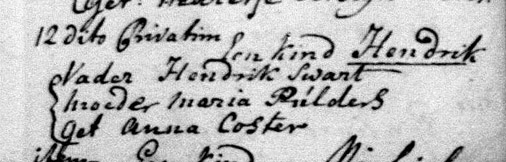 12 dito Privatim
Een kind Hendrik
Vader Hendrik Swart
moeder maria Rúlders
get anna Coster